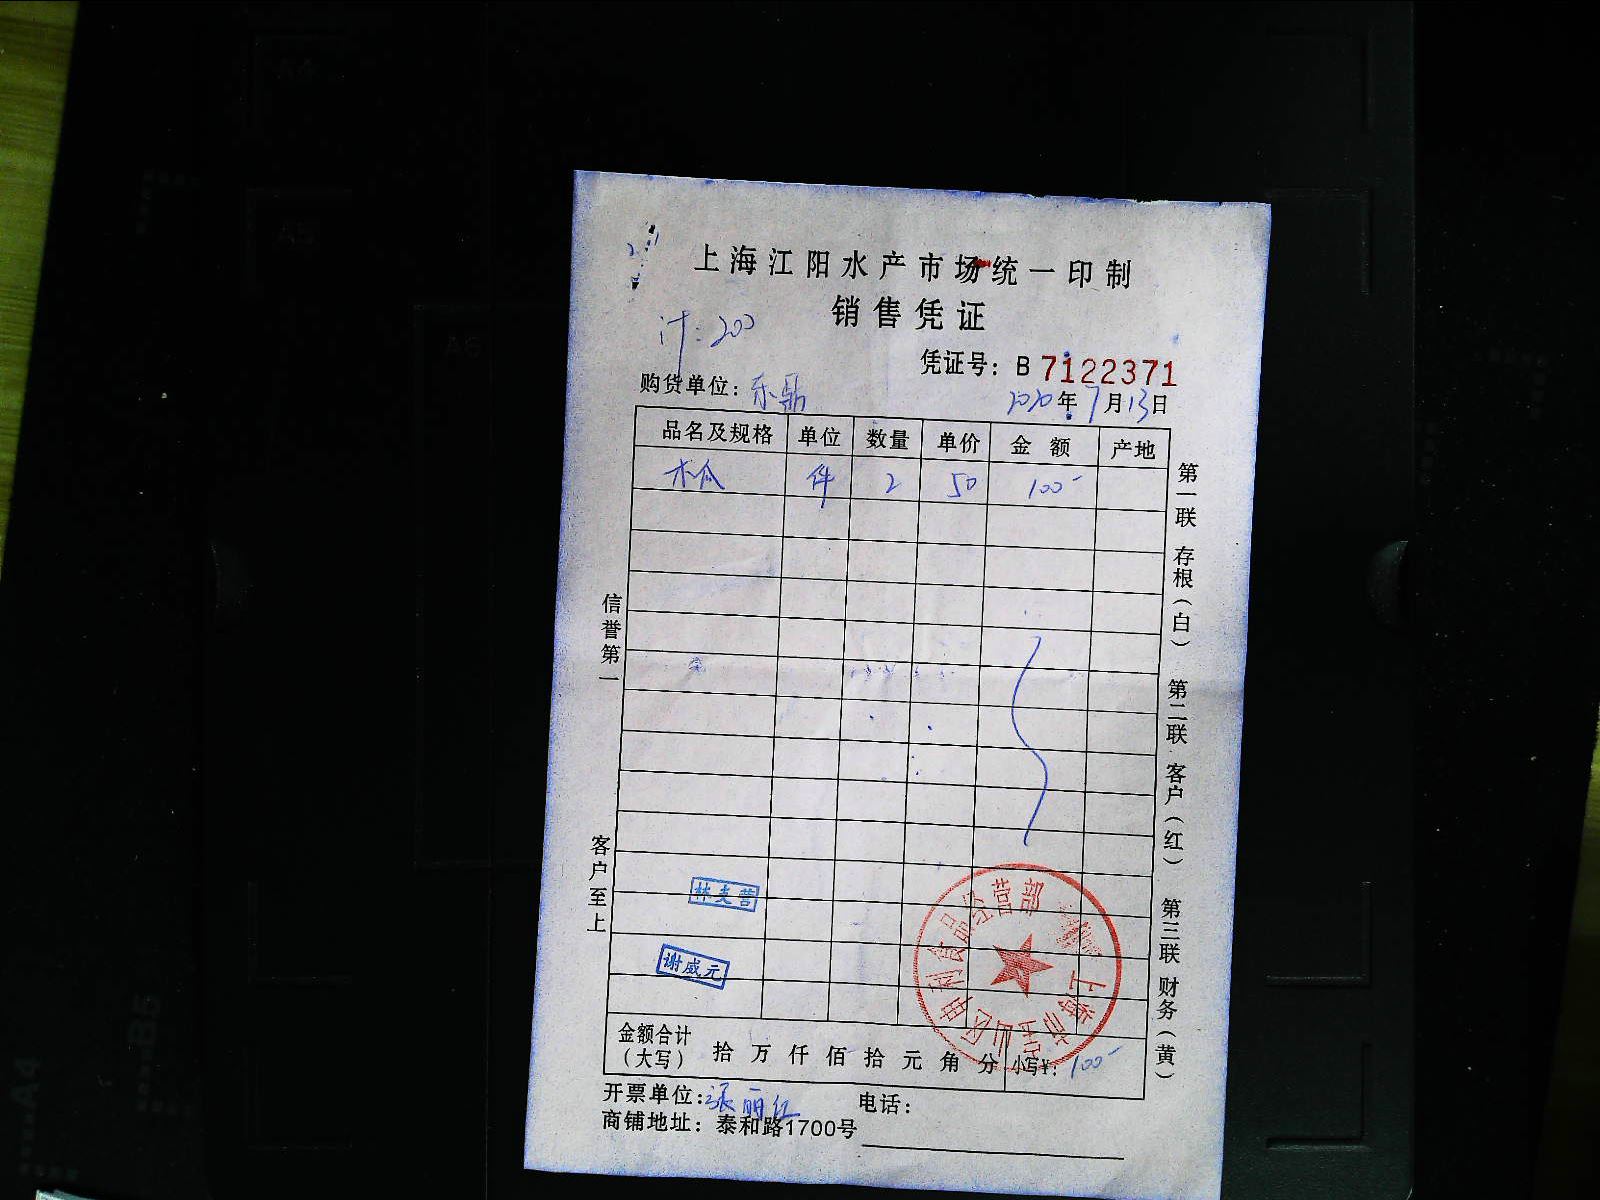 上海江阳水产市场统一印制
销售凭证
计:200
凭证号: B 7122371
购货单位: 东鼎 2020年7月13日
品名及规格 单位 数量 单价 金额 产地
木瓜 件 2 50 100-
信誉第一
客户至上
第一联 存根(白) 第二联 客户(红) 第三联 财务(黄)
谢威元
食品经营部
上海市宝山区
金额合计(大写) 拾 万 仟 佰 拾 元 角 分 小写¥: 100-
开票单位: 张丽红 电话:
商铺地址: 泰和路1700号